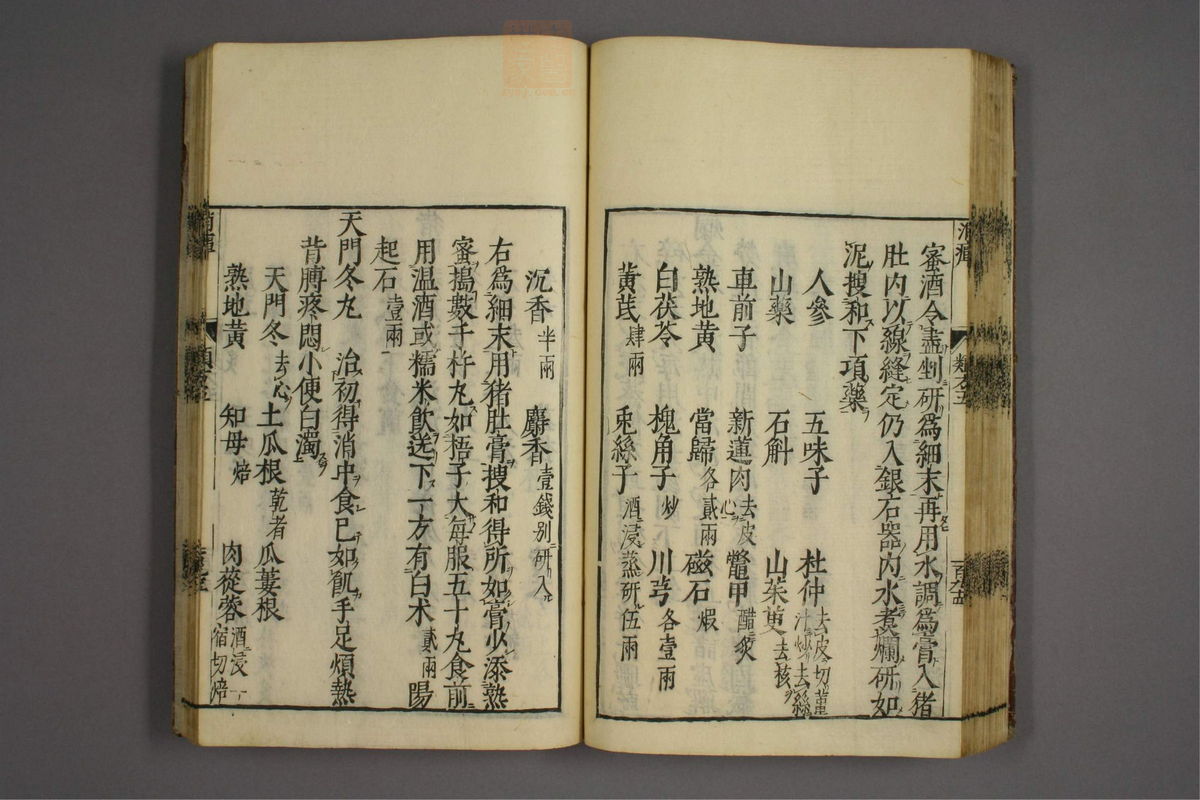 蜜酒令盡剉研爲細末再用水調爲膏入猪
肚内以線縫定仍入銀石器内水煑爛研如
泥搜和下項藥
人參 五味子 杜仲去皮切薑汁炒去絲
山藥 石斛 山茱萸去核
車前子 新蓮肉去皮心 鼈甲醋炙
熟地黃 當歸各貳兩 磁石煅
白茯苓 槐角子炒 川芎各壹兩
黃芪肆兩 兎絲子酒浸蒸研伍兩
沉香半兩 麝香壹錢别研入
右爲細末用猪肚膏搜和得所如膏少添熟
蜜搗數千杵丸如梧子大每服五十丸食前
用温酒或糯米飲送下一方有白朮貳兩陽
起石壹兩
天門冬丸 治初得消中食已如飢手足煩熱
背膊疼悶小便白濁
天門冬去心 土瓜根乾者 瓜蔞根
熟地黃 知母焙 肉蓯蓉酒浸一宿切焙